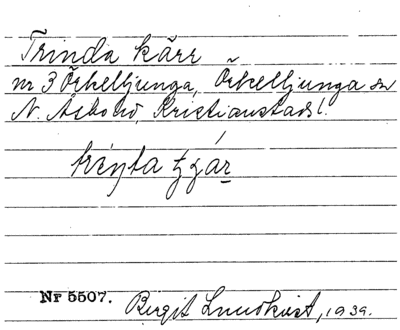 Trinda kärr
nr 3 Örkelljunga, Örkelljunga sn
N. Åsbo hd, Kristianstads l.
Nr 5507. Birgit Lundkvist, 1939.